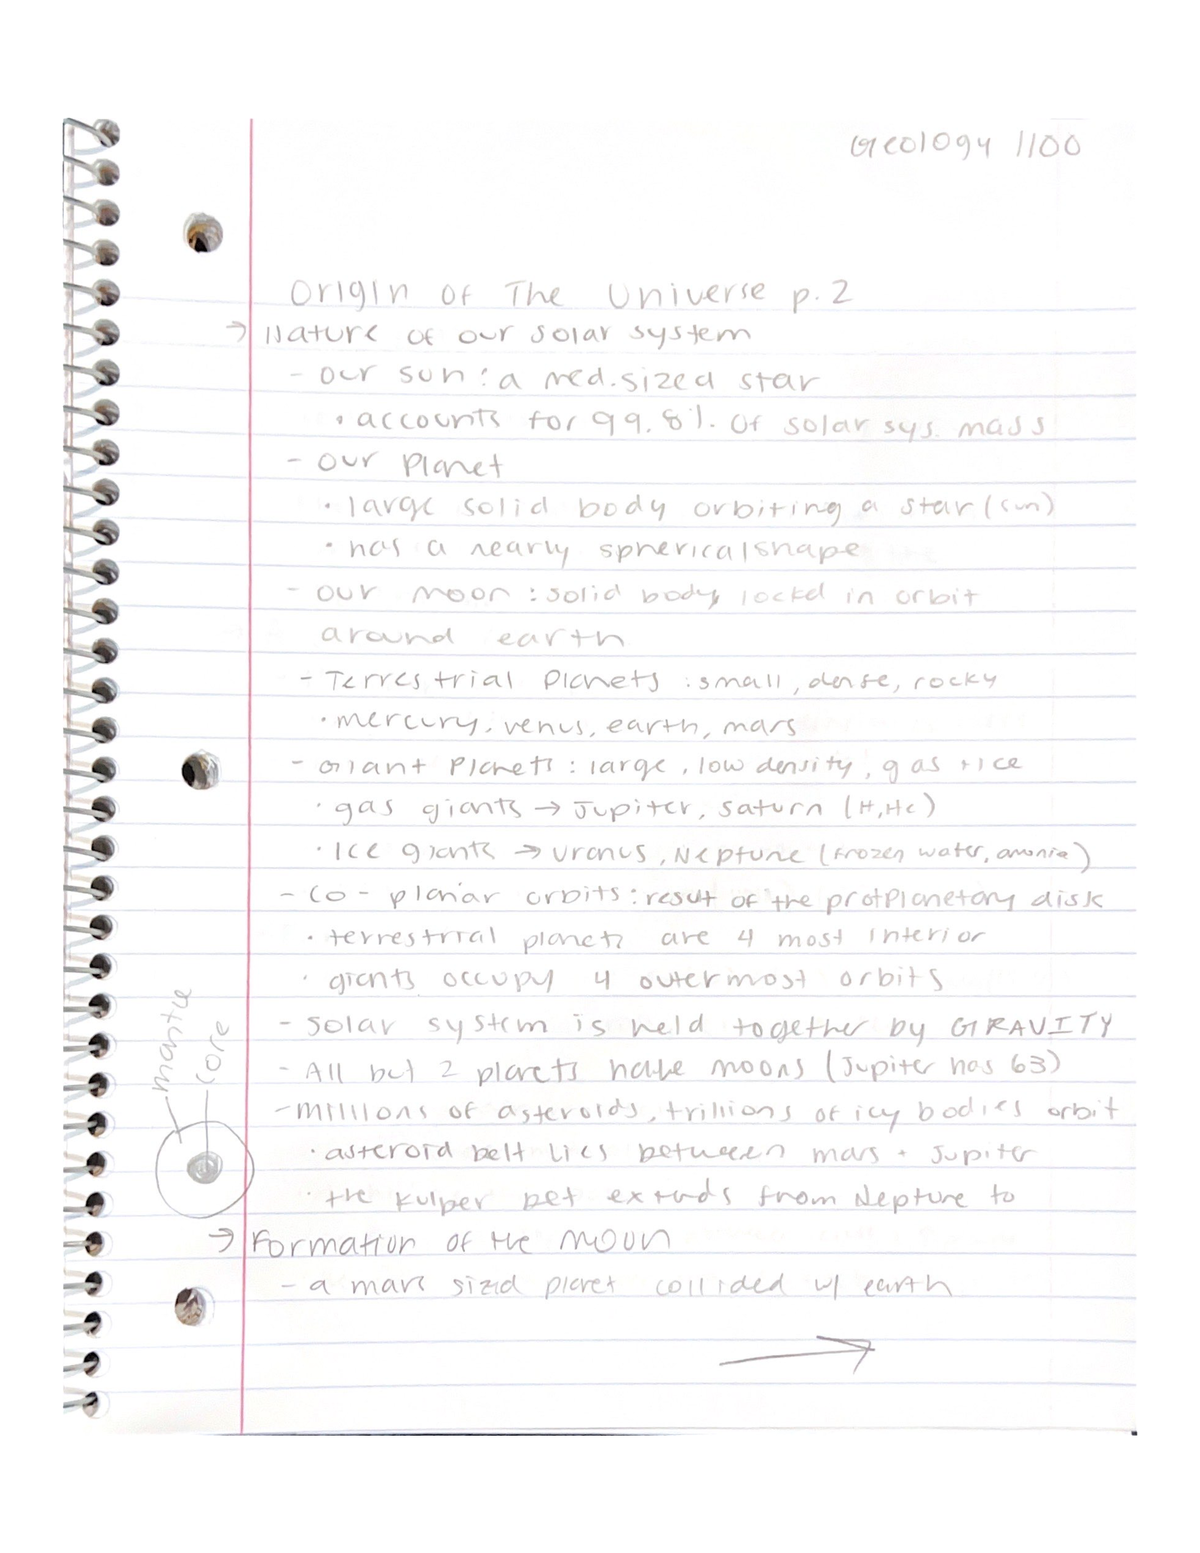 Geology 1100
Origin of The Universe p.2
→ Nature of our solar system
- our sun: a med. sized star
• accounts for 99.8% of solar sys. mass
- our planet
• large solid body orbiting a star (sun)
• has a nearly spherical shape
- our moon: solid body locked in orbit
around earth
- Terrestrial Planets: small, dense, rocky
• mercury, venus, earth, mars
- Giant Planets: large, low density, gas + ice
• gas giants → Jupiter, saturn (H, He)
• Ice giants → uranus, Neptune (frozen water, amonia)
- Co-planar orbits: result of the protplanetary disk
• terrestrial planets are 4 most interior
• giants occupy 4 outermost orbits
- solar system is held together by GRAVITY
- All but 2 planets have moons (Jupiter has 63)
- millions of asteroids, trillions of icy bodies orbit
• asteroid belt lies between mars + Jupiter
• the Kuiper bet extends from Neptune to
mantle
core
→ Formation of the moon
- a mars sized planet collided w/ earth
→